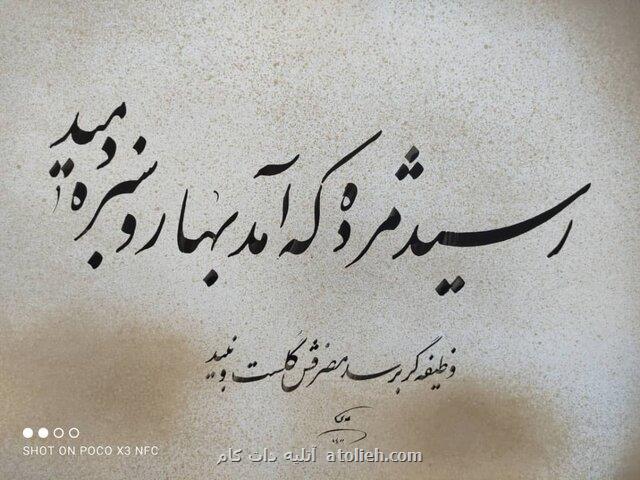 رسید مژده که آمد بهار و سبزه دمید
وظیفه گر برسد مصرفش گلست و نبید
SHOT ON POCO X3 NFC
آتلیه دات کام atolieh.com